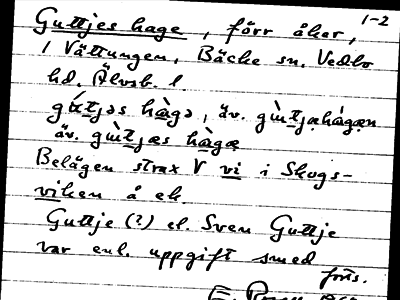 1-2
Guttjes hage, förr åker,
i Vättungen, Bäcke sn, Vedbo
hd. Älvsb. l.
gu̇tjəs hàgə, äv. gu̇tjæhàgæn
äv. gu̇tjæs hàgæ
Belägen strax V vi i Skogs-
viken å ek.
Guttje (?) el. Sven Guttje
var enl. uppgift smed
forts.